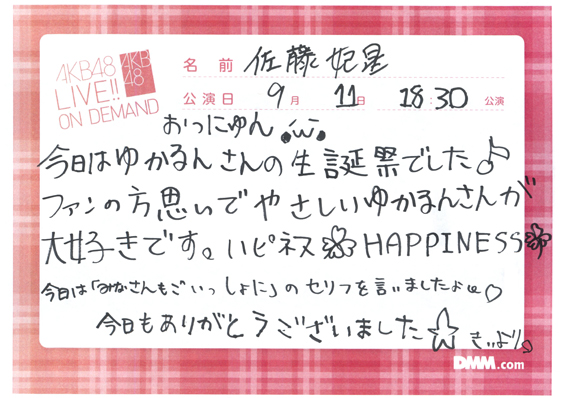 AKB48
LIVE!!
ON DEMAND
AKB
48
名前 佐藤妃星
公演日 9月 11日 18:30 公演
おつにゅん
今日はゆかるんさんの生誕祭でした♪
ファンの方思いでやさしいゆかるんさんが
大好きです。ハピネス HAPPINESS
今日は「みなさんもごいっしょに」のセリフを言いましたよ♡
今日もありがとうございました☆ きぃより
DMM.com